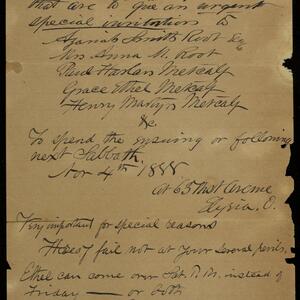 that are to give an urgent
special invitation to
Azariah Smith Root Esq
Mrs Anna M. Root
Paul Harlan Metcalf
Grace Ethel Metcalf
Henry Martyn Metcalf
&c
To spend the ensuing or following
next Sabbath,
Nov 4th 1888
at 65 West Avenue
Elyria, O.
Very important for special reasons
Hereof fail not at your several perils.
Ethel can come on Sat. A.M. instead of
Friday — or both